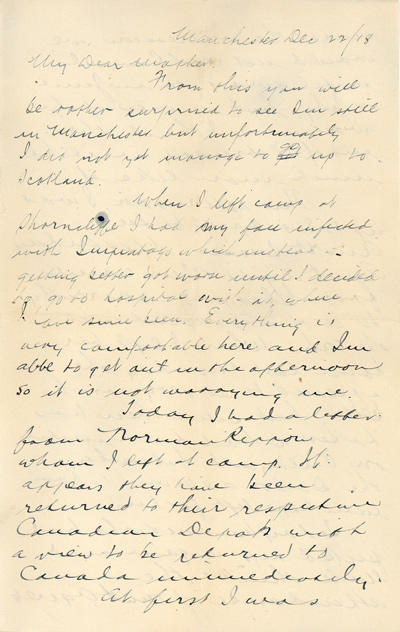 Manchester Dec 22/18
My Dear Mother.
From this you will
be rather surprised to see I'm still
in Manchester but unfortunately
I did not yet manage to go up to
Scotland.
When I left camp at
Shorncliffe I had my face infected
with Impentago which instead
getting better got worse until I decided
to go to hospital with it, where
I have since been. Everything is
very comfortable here and I'm
able to get out in the afternoon
so it is not worrying me.
Today I had a letter
from Norman Rippon
whom I left at camp. It
appears they have been
returned to their respective
Canadian Depots with
a view to be returned to
Canada immediately.
At first I was